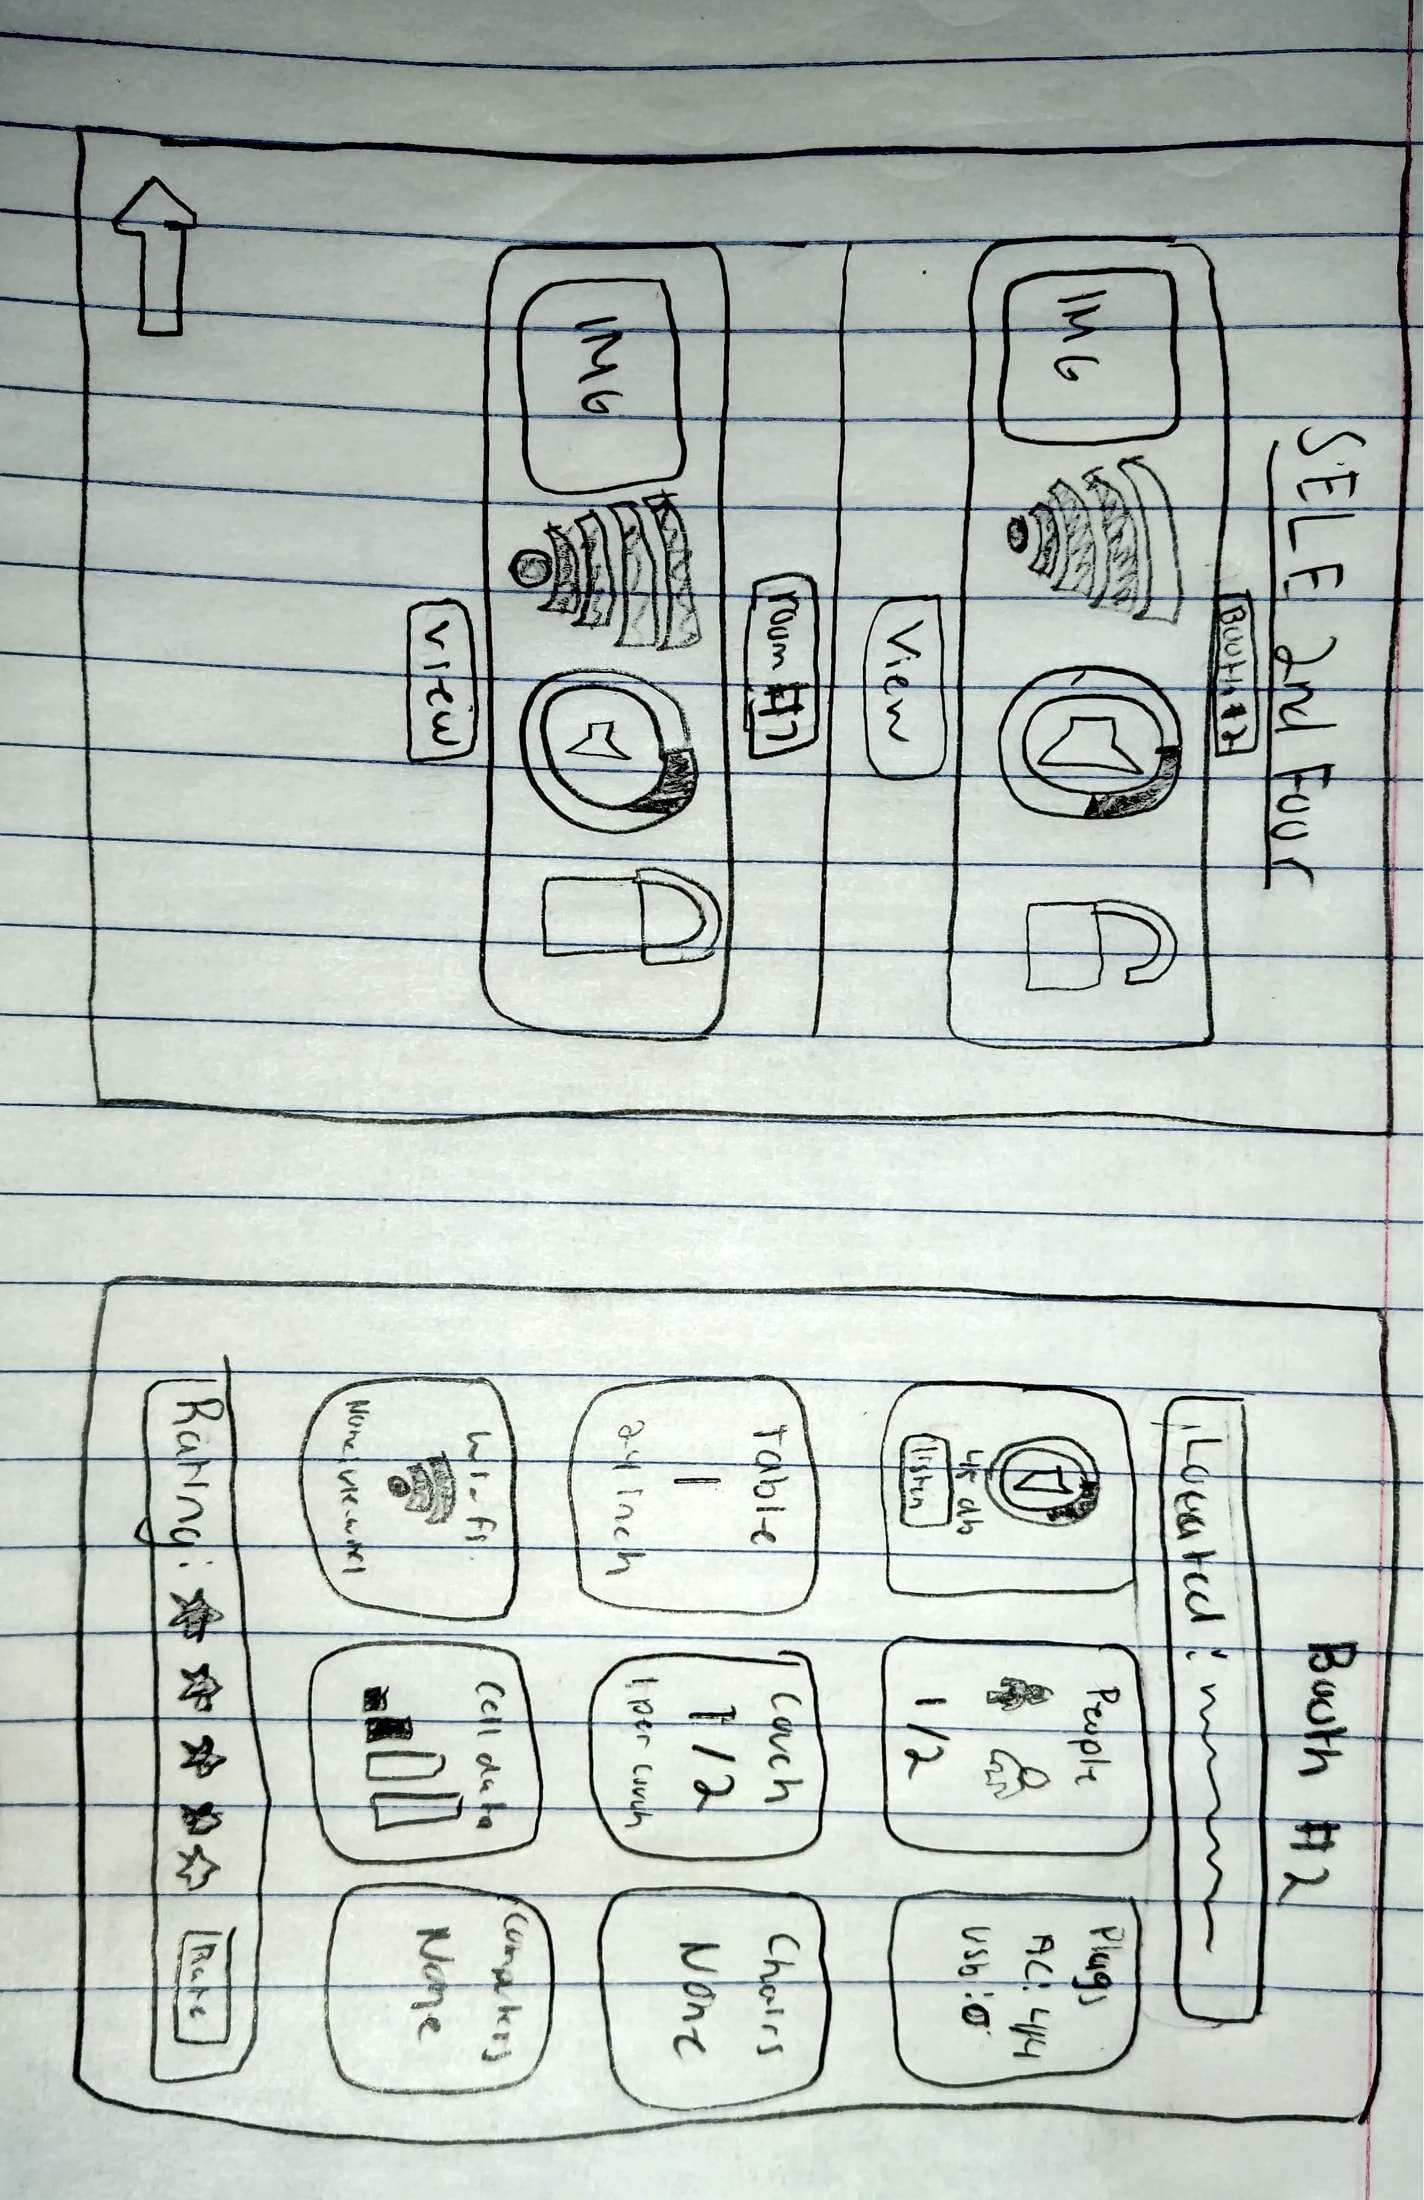 SELE 2nd Foor
Booth #2
IMG
View
room #7
IMG
View
Booth #2
Located:
45 db
listen
People
1/2
Plugs
AC: 4/4
Usb: 0
Table
1
24 inch
Couch
1/2
1 per couch
Chairs
None
Wi-fi
Cell data
Computers
None
Rating:
Rate